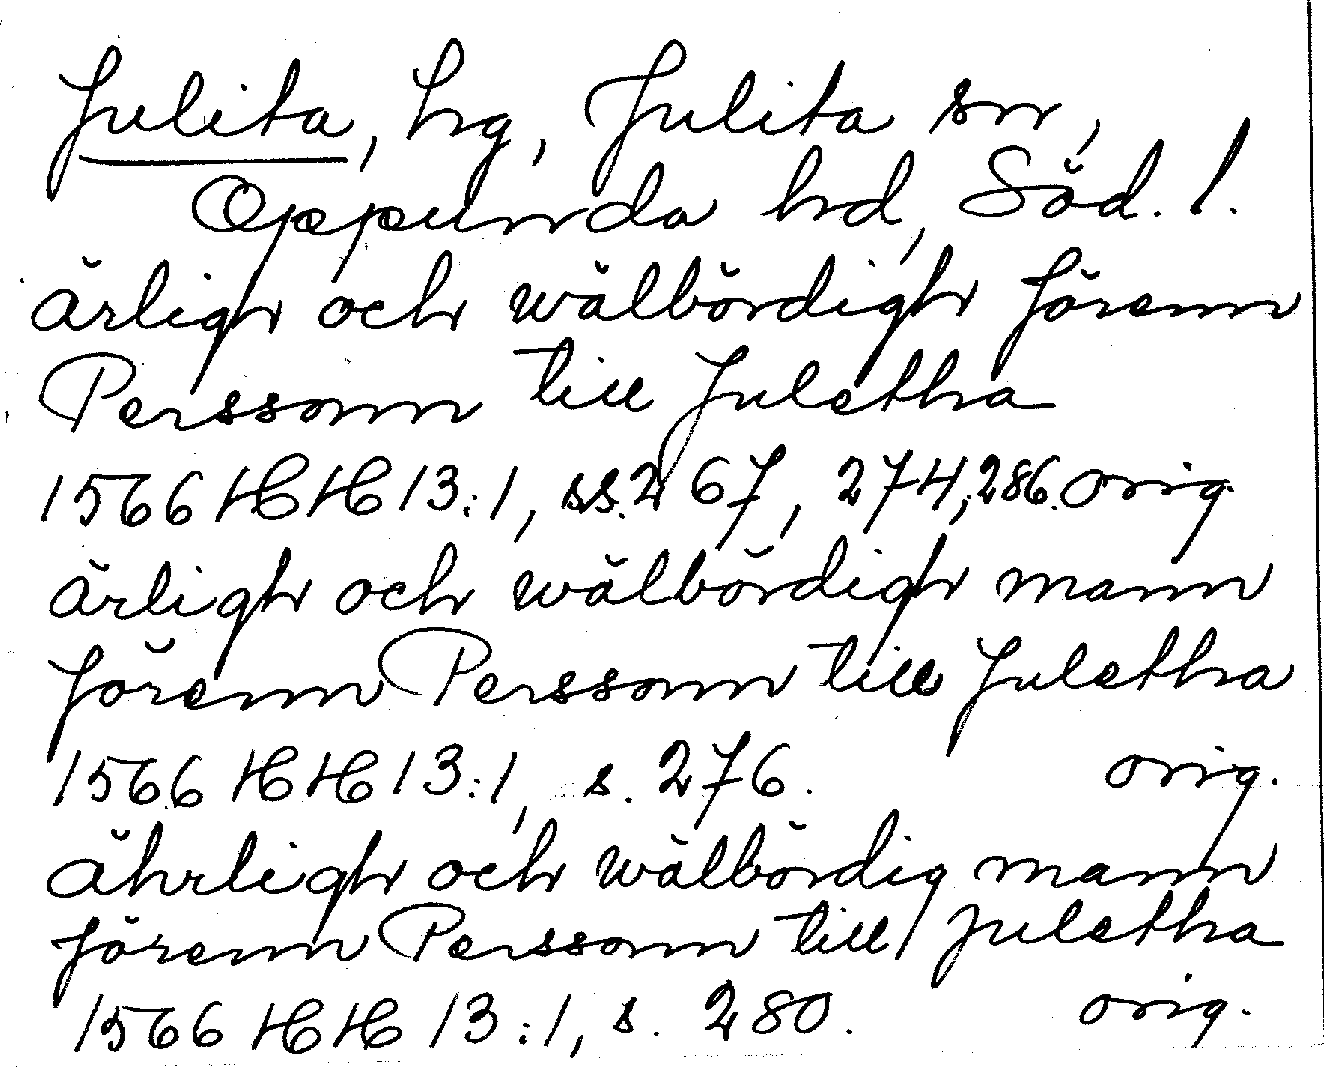 Julita, hg, Julita sn,
Oppunda hd, Söd. l.
ärligh och wälbördigh Jörenn
Perssonn till Juletha
1566 HH 13:1, ss. 267, 274, 286. orig.
ärligh och wälbördigh mann
Jörenn Perssonn till Juletha
1566 HH 13:1, s. 276. orig.
ährligh och wälbördig mann
Jörenn Perssonn till Juletha
1566 HH 13:1, s. 280. orig.